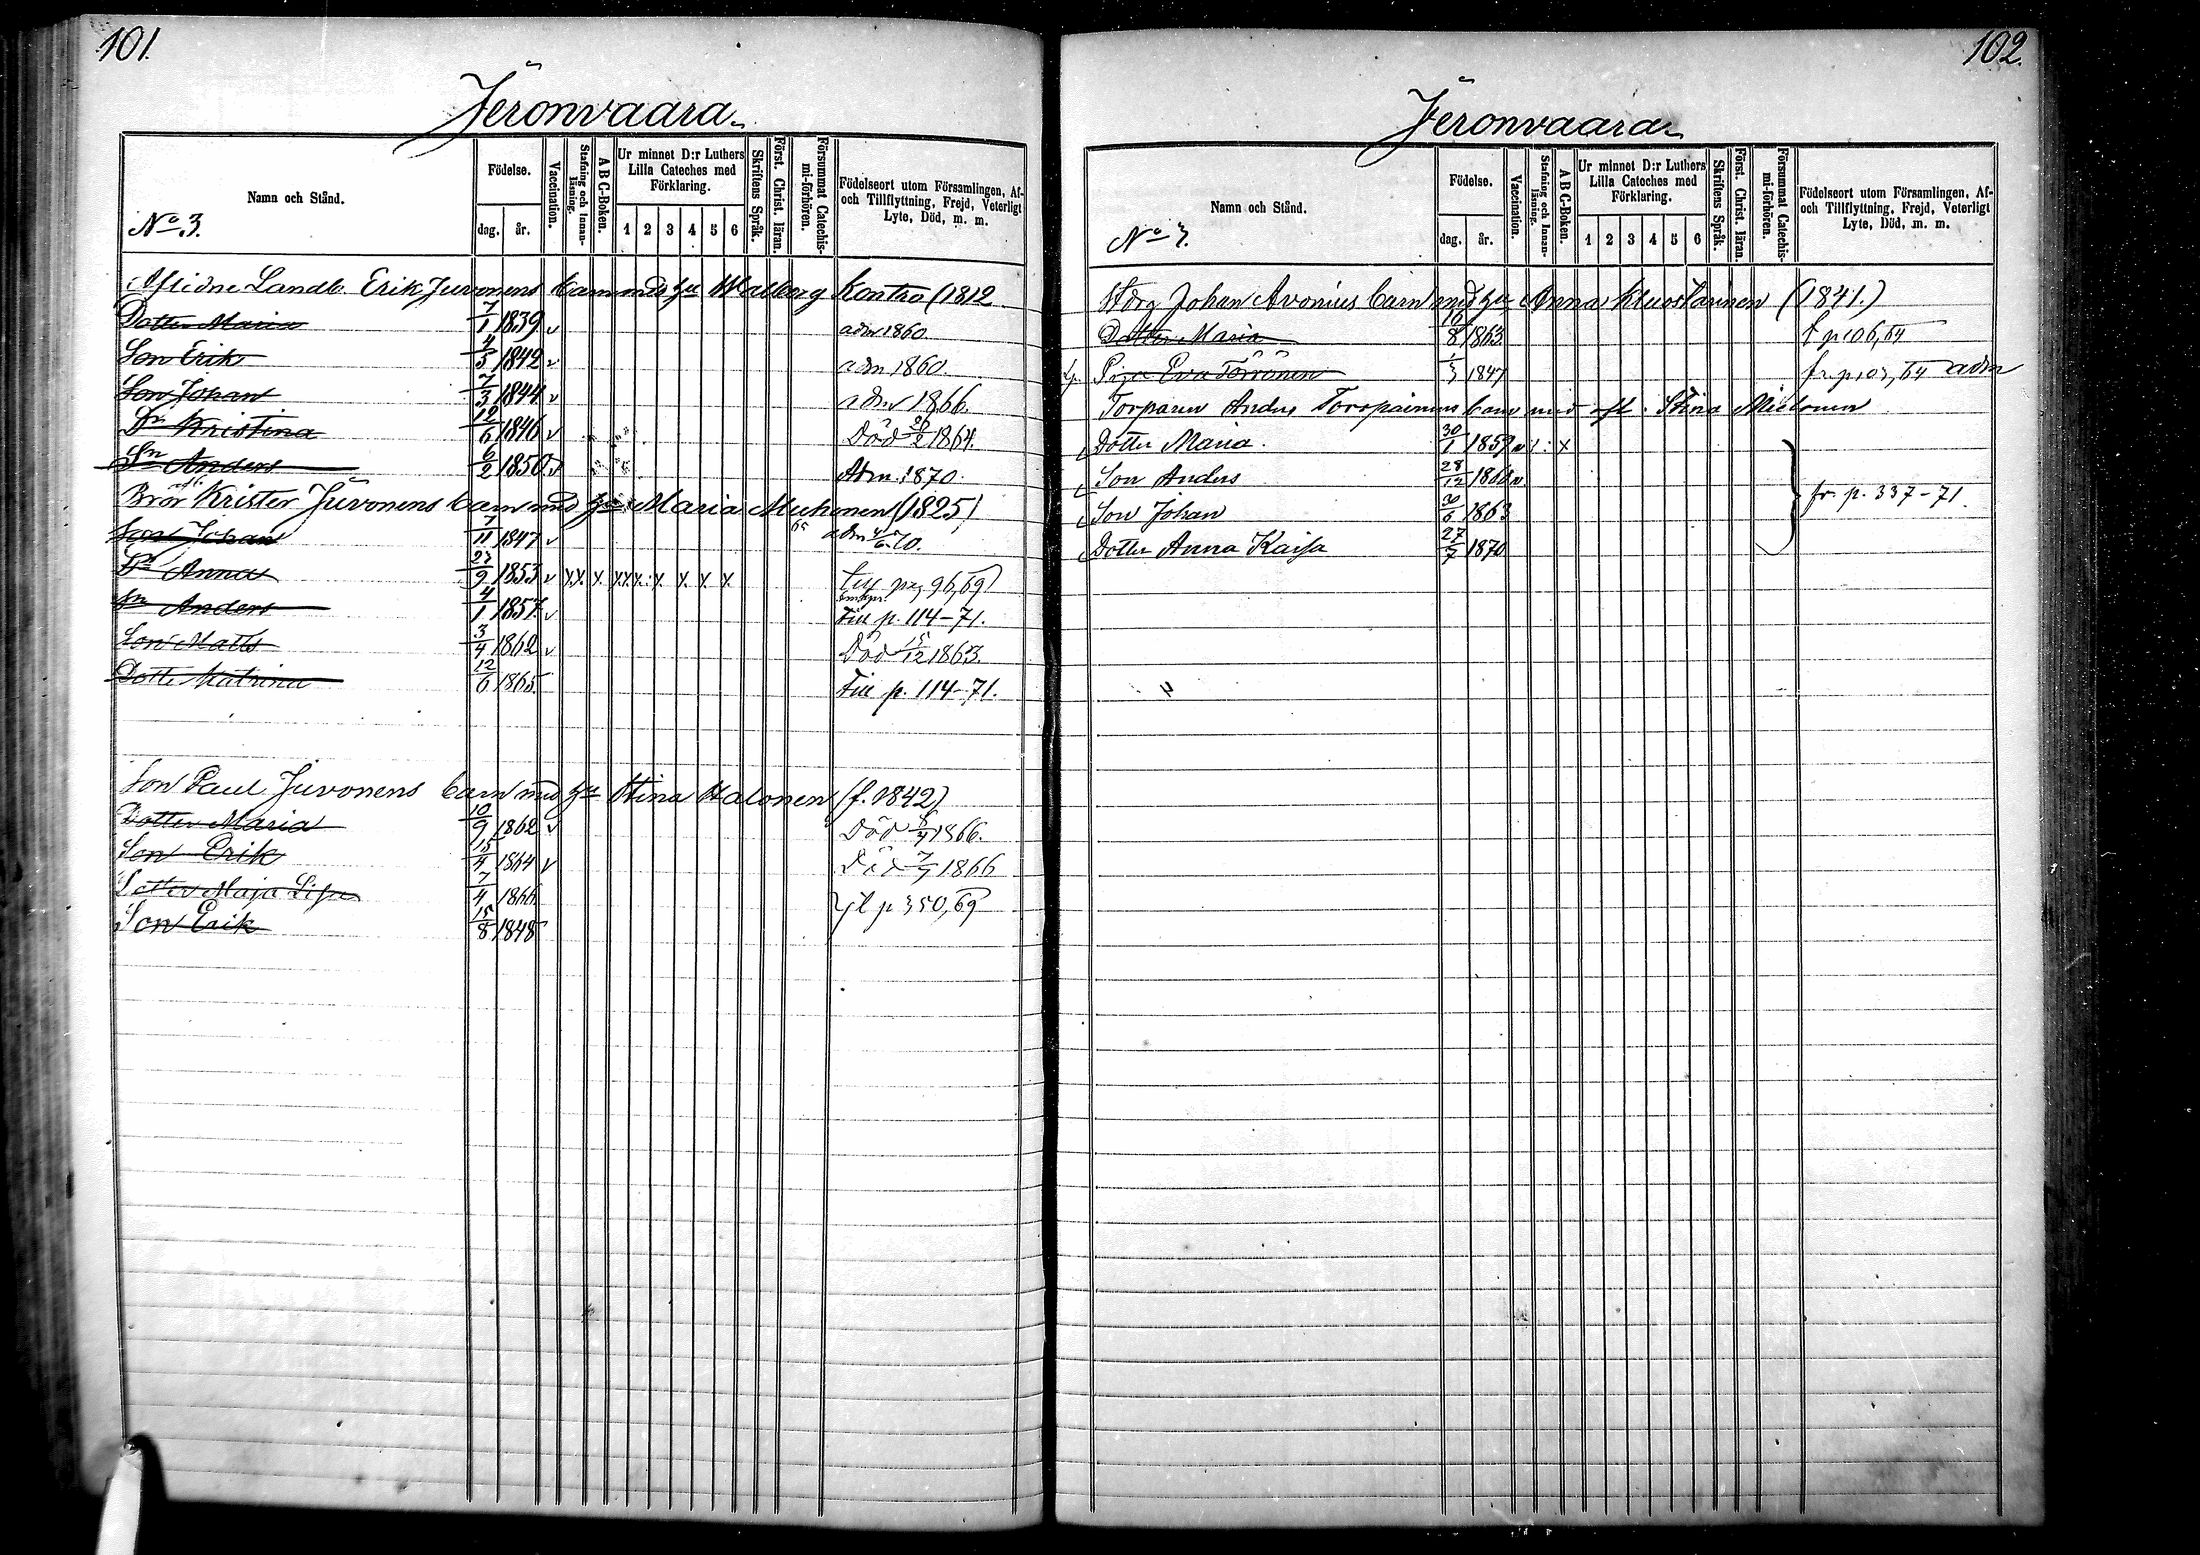 101.
Jeronvaara
Namn och Stånd.
No 3.
Födelse.
dag. år.
Vaccination.
Stafning och Innan-läsning.
A B C-Boken.
Ur minnet D:r Luthers Lilla Cateches med Förklaring.
1 2 3 4 5 6
Skriftens Språk.
Först. Christ. läran.
Försummat Catechis-mi-förhören.
Födelseort utom Församlingen, Af- och Tillflyttning, Frejd, Veterligt Lyte, Död, m. m.
Aflidne Landb. Erik Juvonens barn med hu Walborg Kontra (1812
Dotter Maria 7/1 1839 v adm 1860.
Son Erik 4/5 1842 v adm 1860.
Son Johan 7/3 1844 v adm 1866.
Dr Kristina 12/6 1846 v Död /2 1864.
Sn Anders 6/2 1850 v Adm. 1870.
Bror Krister Juvonens barn med hu Maria Muhonen (1825)
Son Johan 7/11 1847 v adm 70.
Dr Anna 27/9 1853 v x x x x x x x x x x till pag 96,69
Sn Anders 4/1 1857 v Till p. 114-71.
Son Matts 3/4 1862 v Död 15/12 1863.
Dotter Katrina 12/6 1865 Till p. 114-71.
Son Paul Juvonens barn med hu Stina Halonen (f. 1842)
Dotter Maria 10/9 1862 v Död 1866.
Son Erik 15/4 1864 v Död 7/7 1866
Dotter Maja Lisa 7/4 1866
Son Erik 15/8 1848 p 350,69
102.
Jeronvaara
Namn och Stånd.
Födelse.
dag. år.
Vaccination.
Stafning och Innan-läsning.
A B C-Boken.
Ur minnet D:r Luthers Lilla Cateches med Förklaring.
1 2 3 4 5 6
Skriftens Språk.
Först. Christ. läran.
Försummat Catechis-mi-förhören.
Födelseort utom Församlingen, Af- och Tillflyttning, Frejd, Veterligt Lyte, Död, m. m.
Johan Avonius barn med hu Anna (1841.)
Dotter Maria /8 1863. p 106,64
Piga Eva Törrönen 1847 fr. p. 64 adm
Torparen Anders Toropainens barn med afl. Stina Mielonen
Dotter Maria 30/1 1859 v x
Son Anders 28/12 1860 v
Son Johan 1863 fr p. 337-71.
Dotter Anna Kaisa 27/7 1870